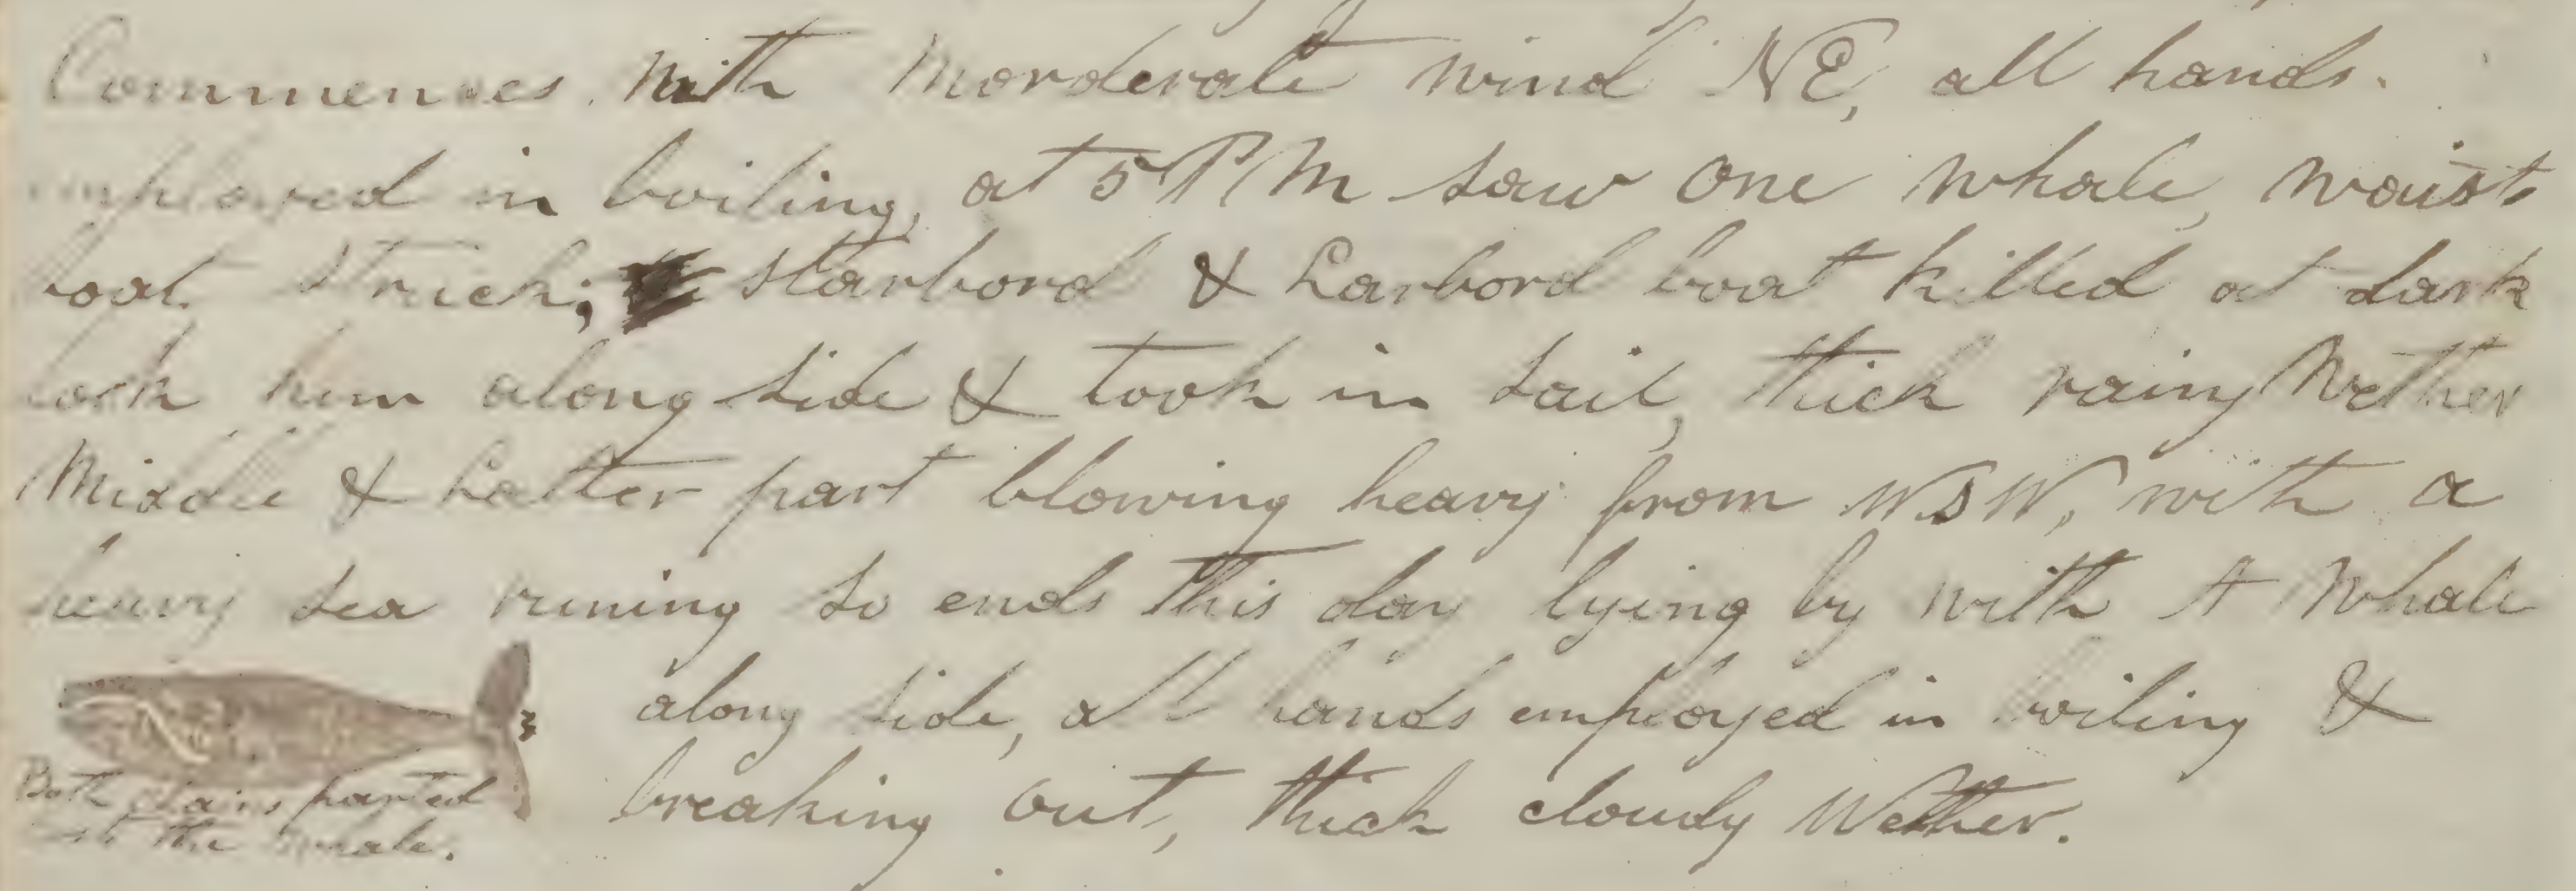 Commences with Morderate wind NE, all hands.
employed in boiling, at 5 PM saw one whale, waist
boat struck; starbord & Larbord boat killed at dark
took him along side & took in sail, thick rainy Wether
Middle & Latter part blowing heavy from WSW, with a
heavy sea runing so ends this day lying by with A Whale
along side, all hands employed in boiling &
breaking out, thick cloudy Wether.
Both parted
the whale.